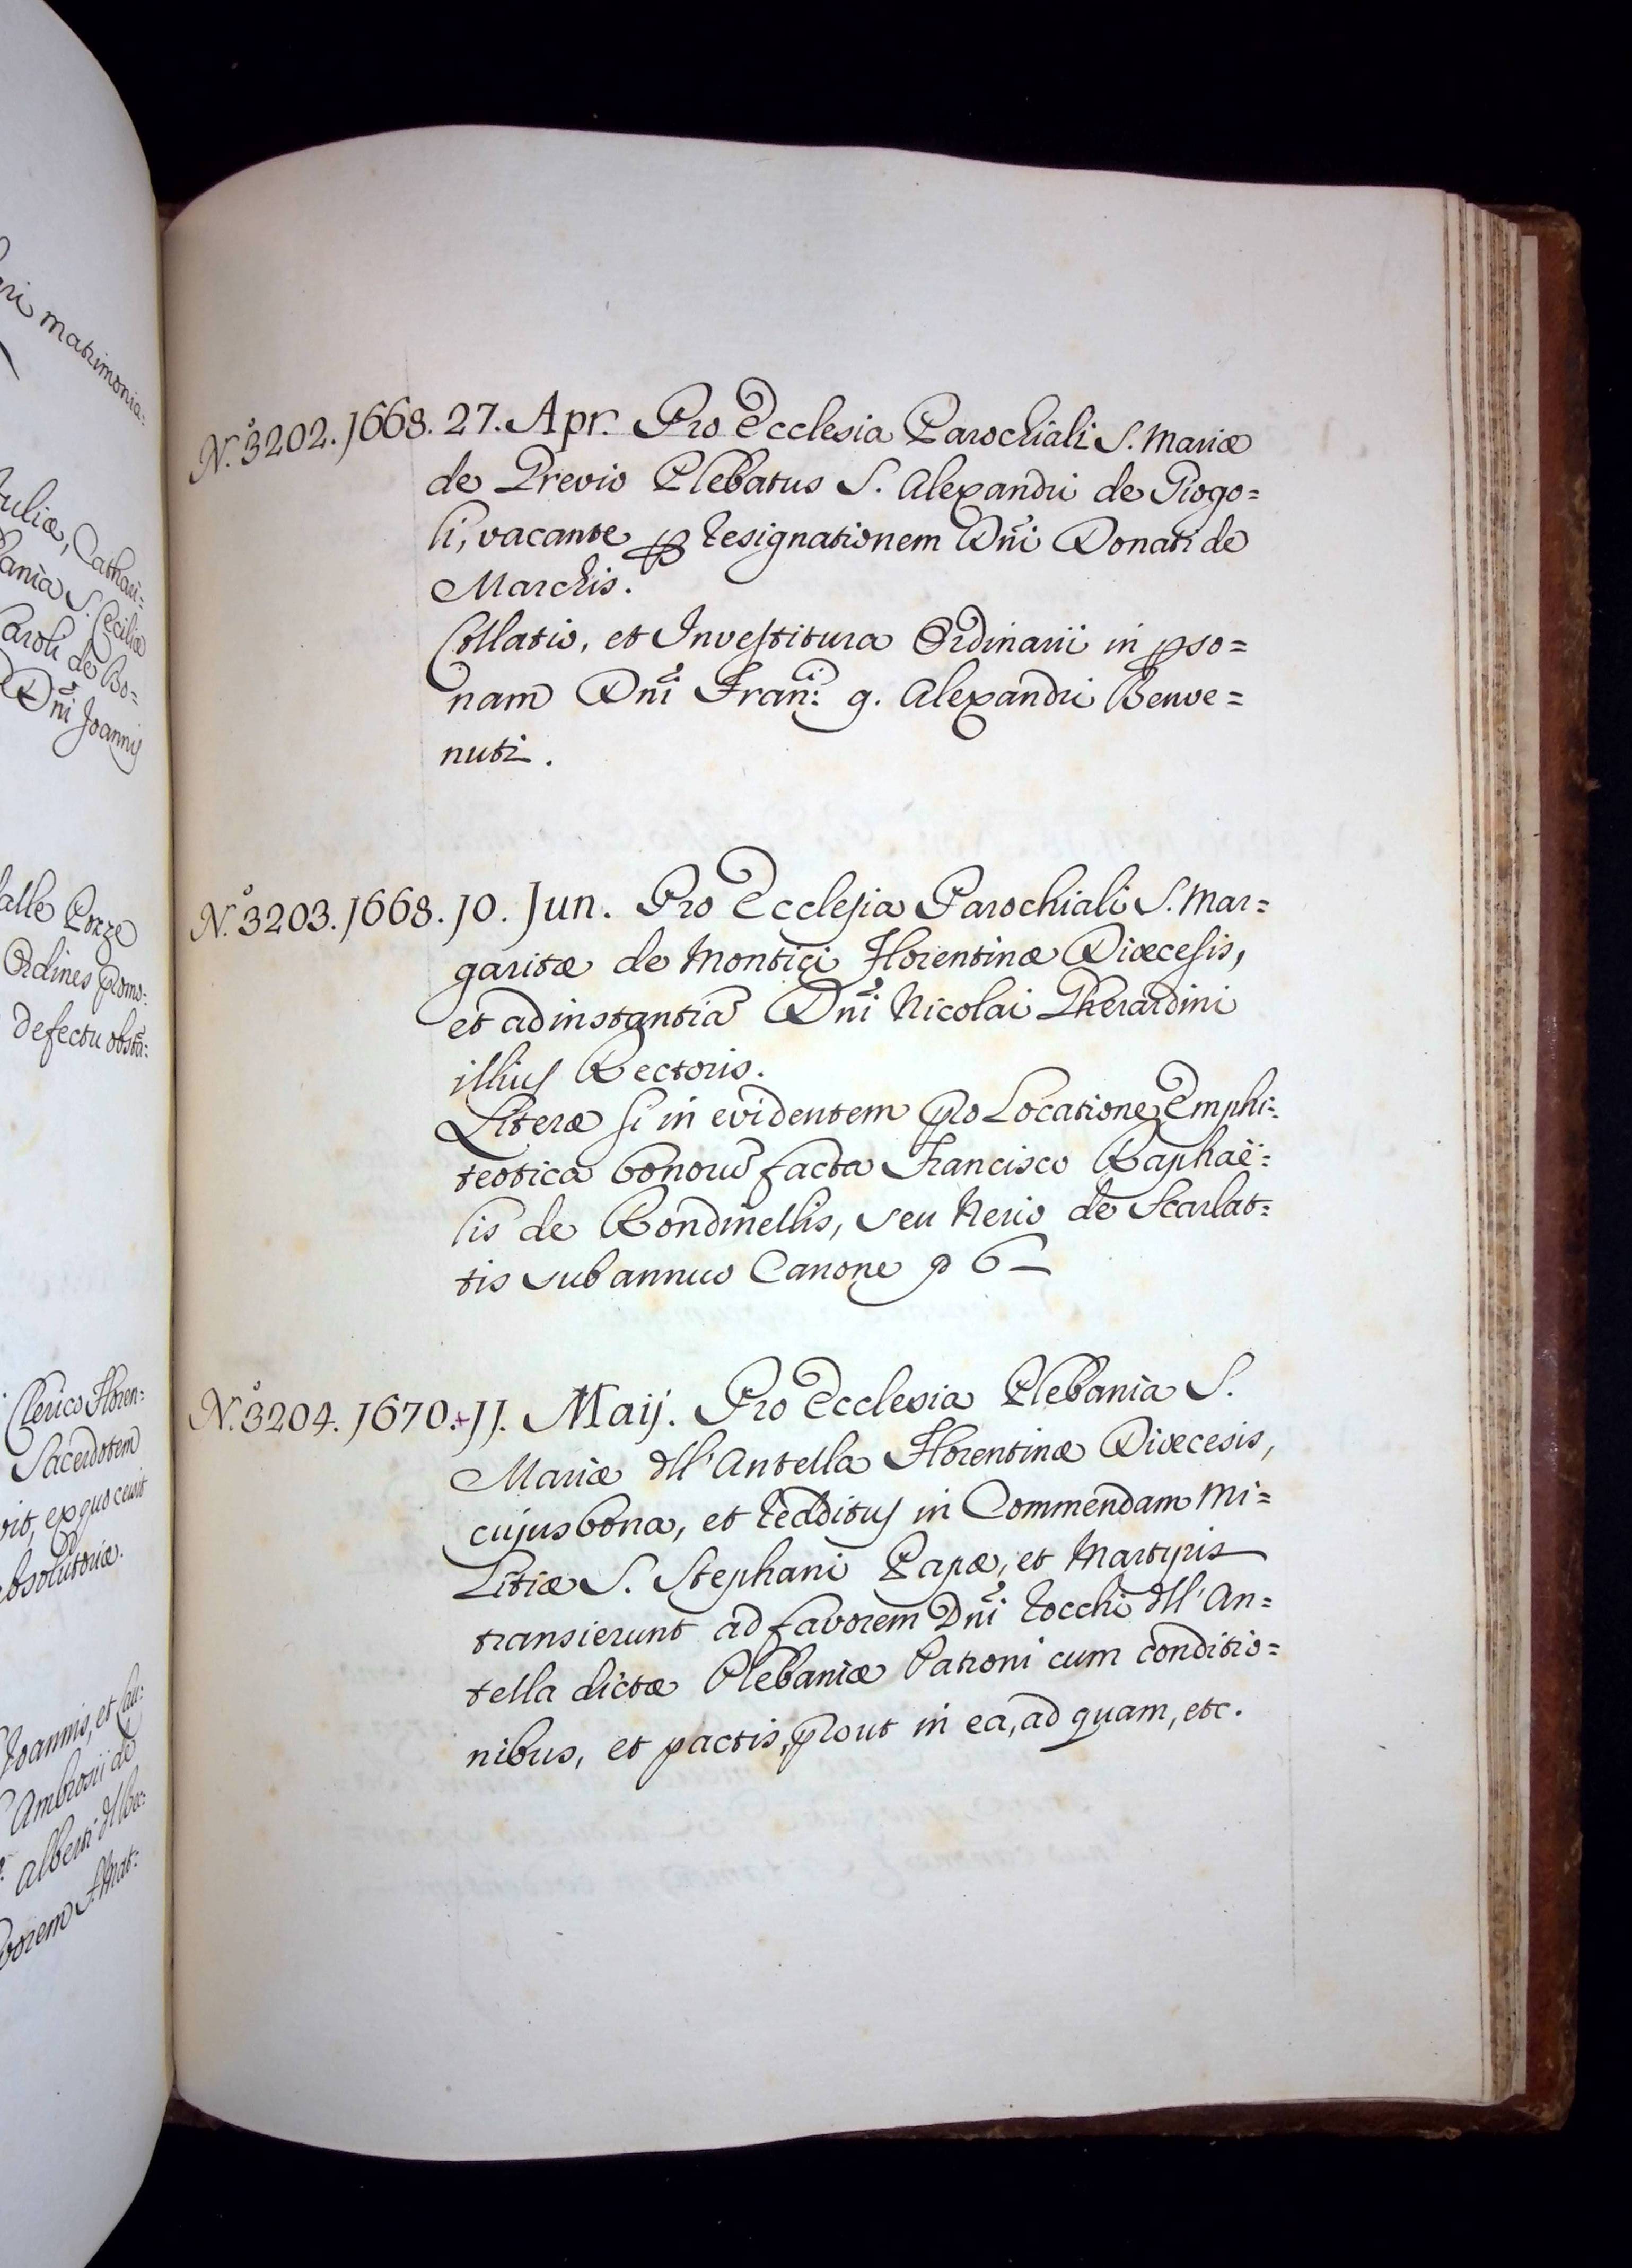 ri matrimonia:
uliæ, Cathari:
ania S. Ceciliæ
Caroli de Bo=
Dñi Joannis
alle Pozze
Ordines promo:
defectu obstã:
Clerico Floren:
Sacerdotem
vit, ex quo cecit
bsolutoriæ.
Joannis, et Lau:
Ambrosii de
Alberti dll Bec:
vorem
N.º 3202. 1668. 27. Apr. Pro Ecclesia Parochiali S. Mariæ
de Grevio Plebatus S. Alexandri de Giogo=
li, vacante p Resignationem Dñi Donati de
Marchis.
Collatio, et Investitura Ordinarii in pso=
nam Dñi Fran:i q. Alexandri Benve=
nuti.
N.º 3203. 1668. 10. Jun. Pro Ecclesia Parochiali S. Mar=
garitæ de Montici Florentinæ Diœcesis,
et ad instantiã Dñi Nicolai Gherardini
illius Rectoris.
Literæ si in evidentem pro Locatione Emphi:
teotica bonorũ facta Francisco Raphaë:
lis de Rondinellis, seu Nerio de Scarlat:
tis sub annuo Canone p 6 —
N.º 3204. 1670.+11. Maij. Pro Ecclesia Plebania S.
Mariæ dll'Antella Florentinæ Diœcesis,
cujus bona, et Redditus in Commendam Mi=
Litiæ S. Stephani Papæ, et Martyris
transierunt ad favorem Dñi Rocchi dll'An=
tella dictæ Plebaniæ Patroni cum conditio=
nibus, et pactis, prout in ea, ad quam, etc.